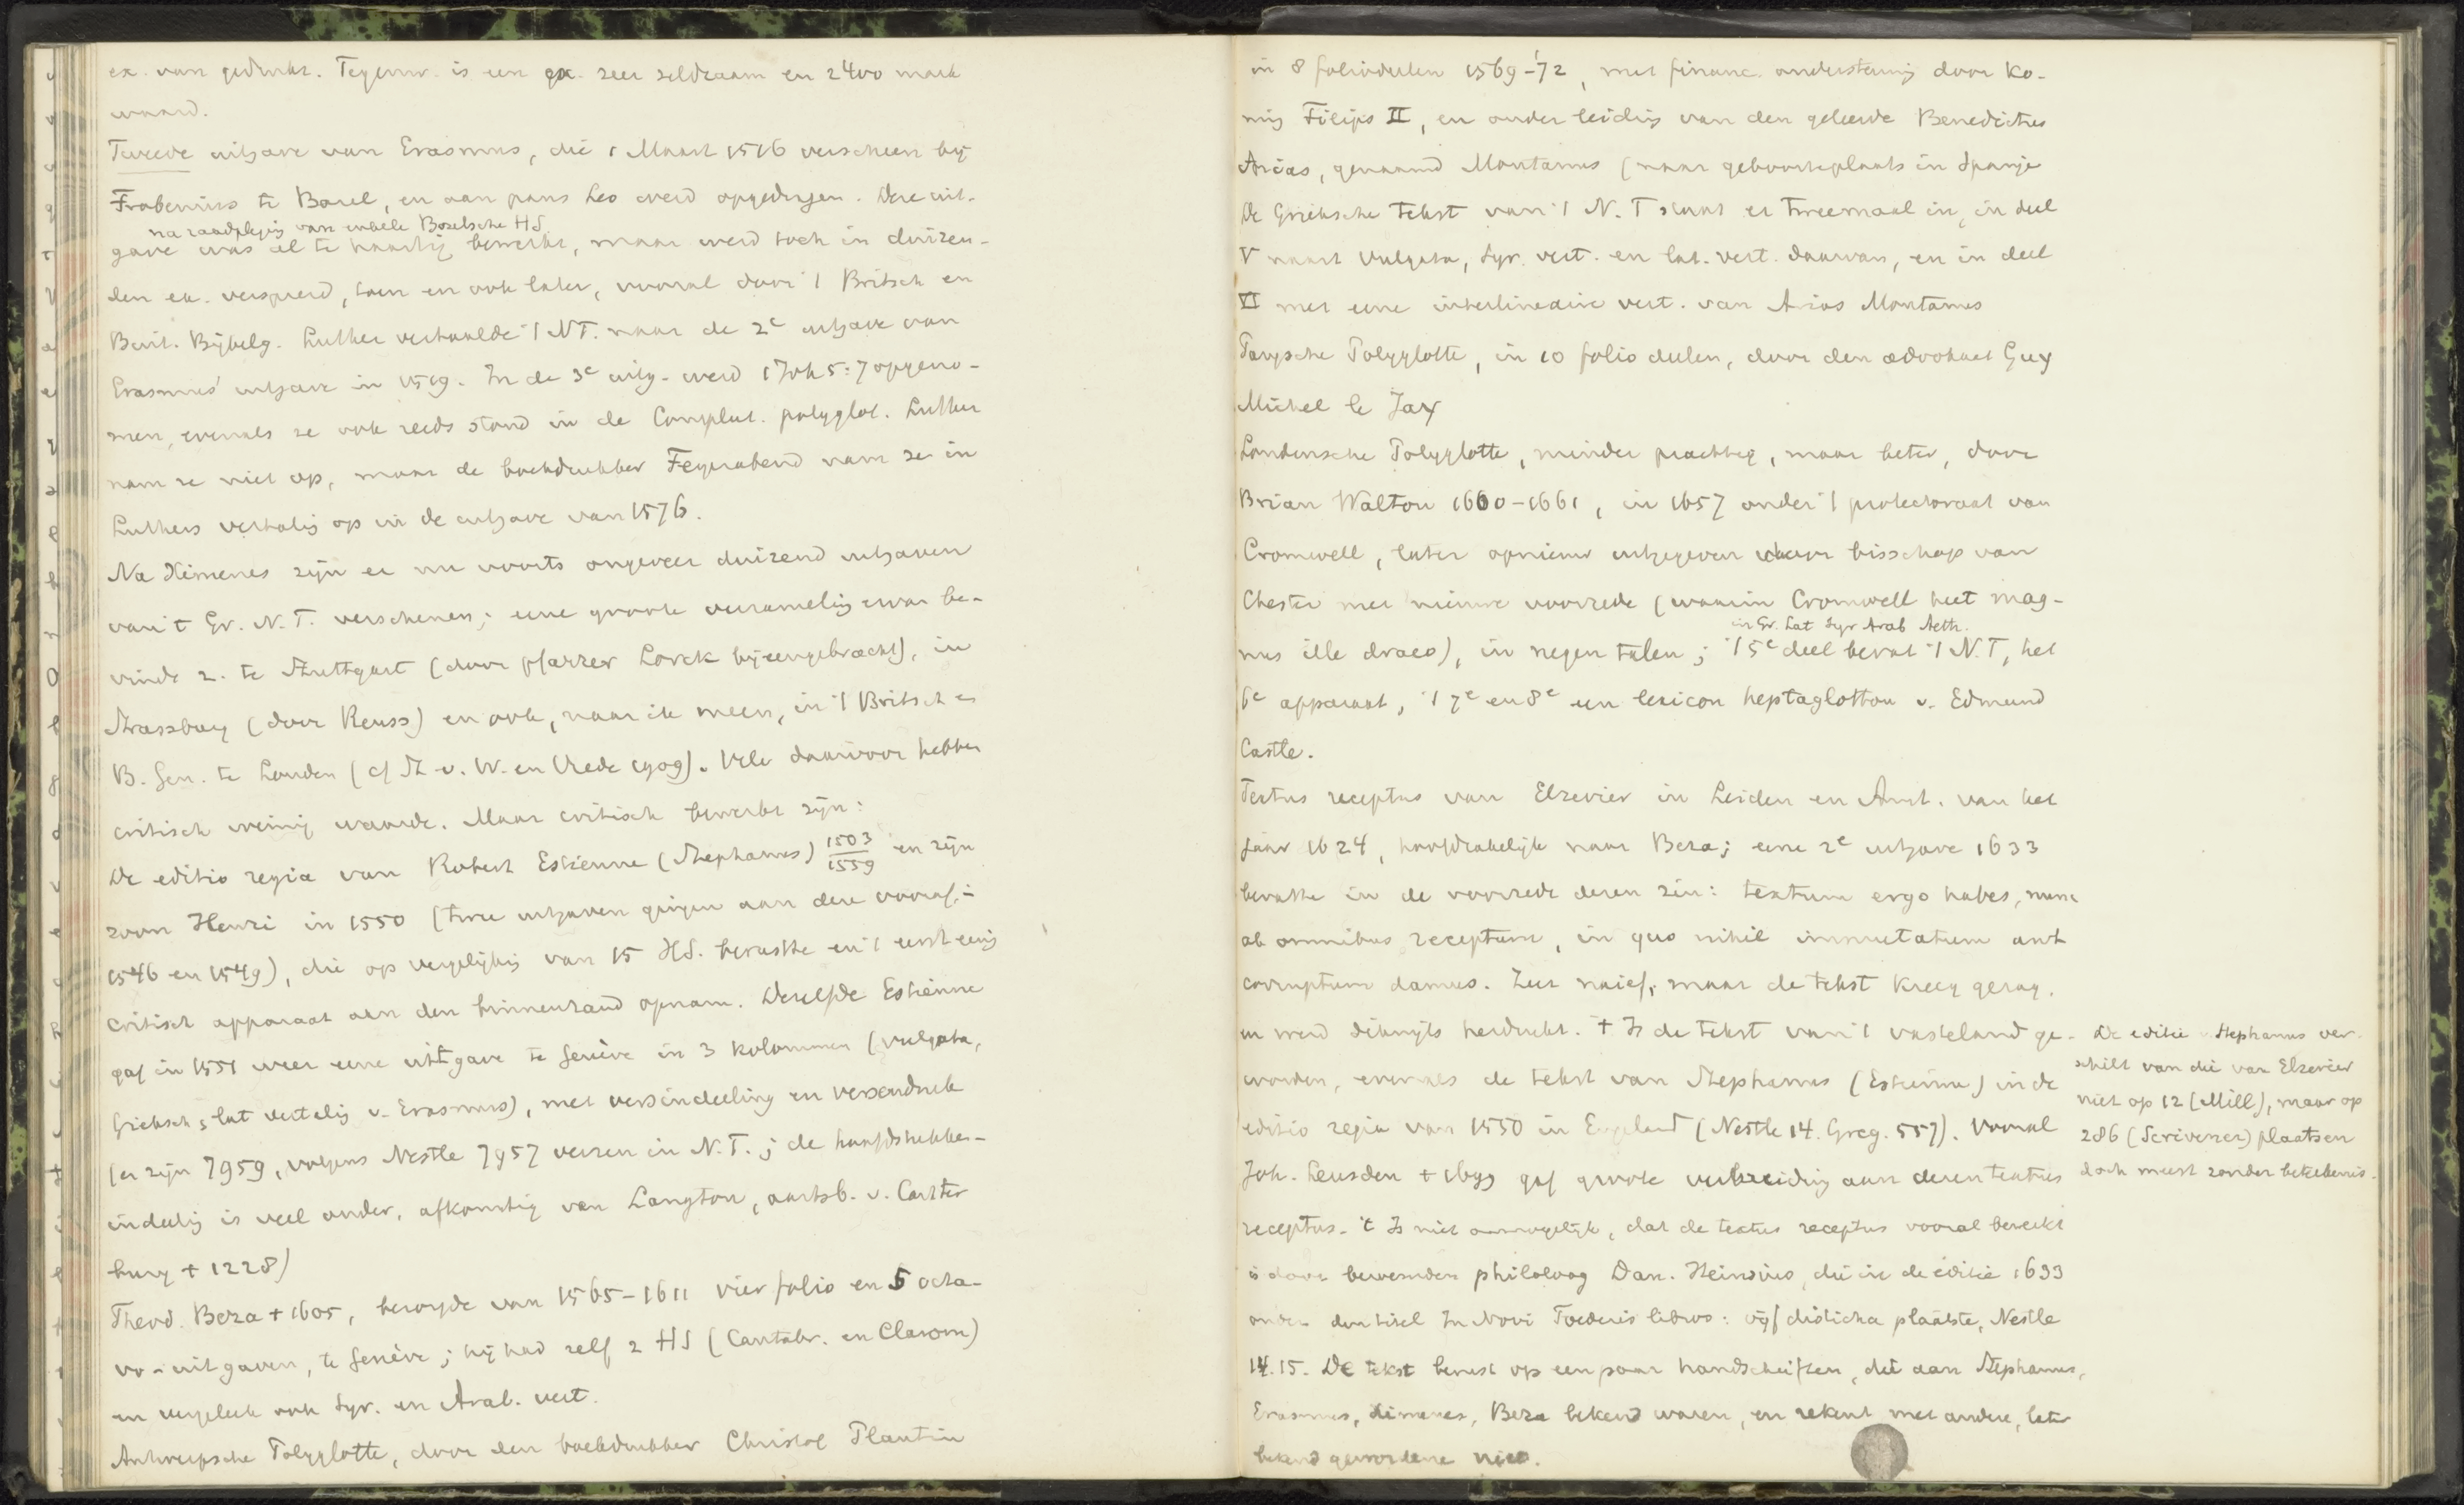 ex. van gedrukt. Tegenw. is een ex. zeer zeldzaam en 2400 mark
waard.
Tweede uitgave van Erasmus, die 1 Maart 1516 verscheen bij
Frobenius te Basel, en aan paus Leo werd opgedragen. Deze uit-
na raadpleging van enkele Bazelsche HS.
gave was al te haastig bewerkt, maar werd toch in duizen-
den ex. verspreid, toen en ook later, vooral door 't Britsch en
Buit. Bijbelg. Luther vertaalde 't NT. naar de 2e uitgave van
Erasmus' uitgave in 1519. In de 3e uitg. werd 1 Joh 5:7 opgeno-
men, evenals ze ook reeds stond in de Complut. polyglot. Luther
nam ze niet op, maar de boekdrukker Feyerabend nam ze in
Luthers vertaling op in de uitgave van 1576.
Na Ximenes zijn er nu voorts ongeveer duizend uitgaven
van 't Gr. N.T. verschenen; eene groote verzameling ervan be-
vindt z. te Stuttgart (door pfarrer Lorck bijeengebracht), in
Strassburg (door Reuss) en ook, naar ik meen, in 't Britsch en
B. Gen. te Londen (cf St. v. W. en Vrede 1909). Vele daarvoor hebben
critisch weinig waarde. Maar critisch bewerkt zijn:
De editio regia van Robert Estienne (Stephanus) 1503/1559 en zijn
zoon Henri in 1550 (twee uitgaven gingen aan deze vooraf, in
1546 en 1549), die op vergelijking van 15 HS. berustte en 't eerst eenig
critisch apparaat aan den binnenrand opnam. Dezelfde Estienne
gaf in 1551 weer eene uitgave te Genève in 3 kolommen (vulgata,
Grieksch, lat vertaling v. Erasmus), met versindeeling en verzendruk
(er zijn 7959, volgens Nestle 7957 verzen in N.T.; de hoofdstukken-
indeeling is veel ouder, afkomstig van Langton, aartsb. v. Canter
bury + 1228)
Theod. Beza + 1605, bezorgde van 1565-1611 vier folio en 5 octa-
vo-uitgaven, te Genève; hij had zelf 2 HS (Cantabr. en Clarom)
en vergeleek ook Syr. en Arab. vert.
Antwerpsche Polyglotte, door den boekdrukker Christof Plantin
in 8 foliodeelen 1569-'72, met financ. ondersteuning door Ko-
ning Filips II, en onder leiding van den geleerde Benedictus
Arias, genaamd Montanus (naar geboorteplaats in Spanje
De Grieksche tekst van 't N.T staat er tweemaal in, in deel
V naast Vulgata, Syr. vert. en lat. vert. daarvan, en in deel
VI met eene interlineaire vert. van Arias Montanus
Parysche Polyglotte, in 10 folio deelen, door den advokaat Guy
Michel le Jay
Londensche Polyglotte, minder prachtig, maar beter, door
Brian Walton 1600-1661, in 1657 onder 't protectoraat van
Cromwell, later opnieuw uitgegeven door bisschop van
Chester met nieuwe voorrede (waarin Cromwell heet mag-
in Gr. Lat Syr Arab Aeth.
nus ille draco), in negen talen; 't 5e deel bevat 't N.T, het
6e apparaat, 't 7e en 8e een lexicon heptaglotton v. Edmund
Castle.
Textus receptus van Elzevier in Leiden en Amst. van het
jaar 1624, hoofdzakelijk naar Beza; eene 2e uitgave 1633
bevatte in de voorrede dezen zin: textum ergo habes, nunc
ab omnibus receptum, in quo nihil immutatum aut
corruptum damus. Zeer naief, maar de tekst kreeg gezag.
en werd dikwijls herdrukt. + Is de tekst van 't vasteland ge-
worden, evenals de tekst van Stephanus (Estienne) in de
editio regia van 1550 in Engeland (Nestle 14. Greg. 557). Vooral
Joh. Leusden + 1699 gaf groote verbreiding aan dezen textus
receptus. 't Is niet onmogelijk, dat de textus receptus vooral bereikt
is door beroemden philoloog Dan. Heinsius, die in de editie 1633
onder den titel In Novi Foederis libros: vijf disticha plaatste, Nestle
14.15. De tekst berust op een paar handschriften, die aan Stephanus,
Erasmus, Ximenes, Beza bekend waren, en rekent met andere, later
bekend gewordene niet.
De editie v. Stephanus ver-
schilt van die van Elzevier
niet op 12 (Mill), maar op
286 (Scrivener) plaatsen
doch meest zonder beteekenis.